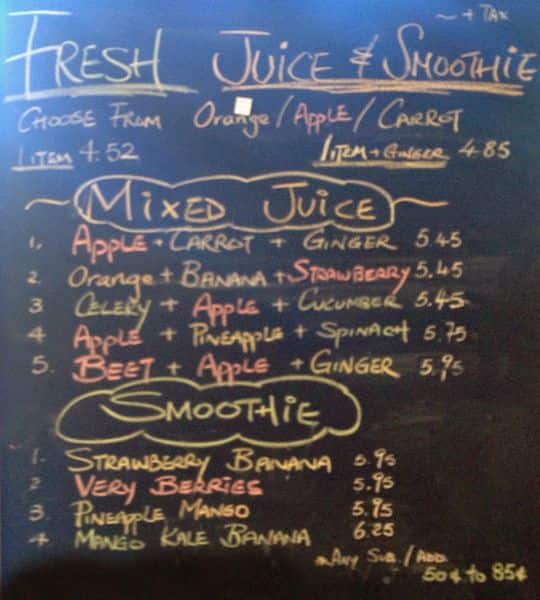 ~ + TAX
FRESH JUICE & SMOOTHIE
CHOOSE FROM Orange / APPLE / CARROT
1 ITEM 4.52 1 ITEM + GINGER 4.85
~ MIXED JUICE ~
1. APPLE + CARROT + GINGER 5.45
2. Orange + BANANA + STRAWBERRY 5.45
3 CELERY + APPLE + CUCUMBER 5.45
4 APPLE + PINEAPPLE + SPINACH 5.75
5. BEET + APPLE + GINGER 5.95
SMOOTHIE
1. STRAWBERRY BANANA 5.95
2 VERY BERRIES 5.95
3. PINEAPPLE MANGO 5.95
4 MANGO KALE BANANA 6.25
*ANY SUB / ADD
50¢ to 85¢